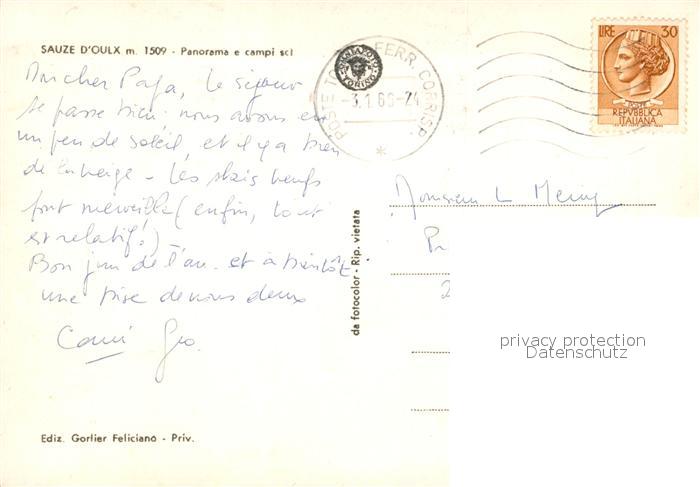 SAUZE D'OULX m. 1509 - Panorama e campi sci
Mon cher Papa, le séjour
se passe bien: nous avons eu
un peu de soleil, et il y a bien
de la neige - Les skis neufs
font merveille (enfin, tout
est relatif!) -
Bon jour de l'an et à bientôt
une bise de nous deux
Geo.
Ediz. Gorlier Feliciano - Priv.
da fotocolor - Rip. vietata
FERR. CORRISP.
TORINO
-3.1.66-24
LIRE 30
POSTE
REPVBBLICA
ITALIANA
Monsieur L
privacy protection
Datenschutz